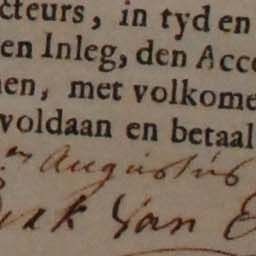 cteurs, in tyd en
en Inleg, den Acc
en, met volkome
voldaan en betaal
en Augustus
Van